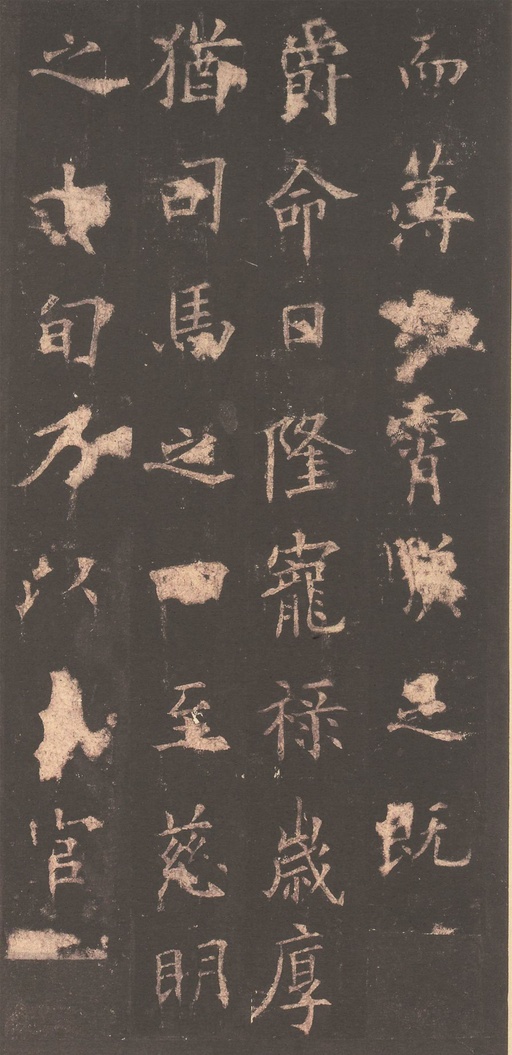 而薄霄足既
爵命日隆寵祿歲厚
猶司馬之一至慈明
之旬以官